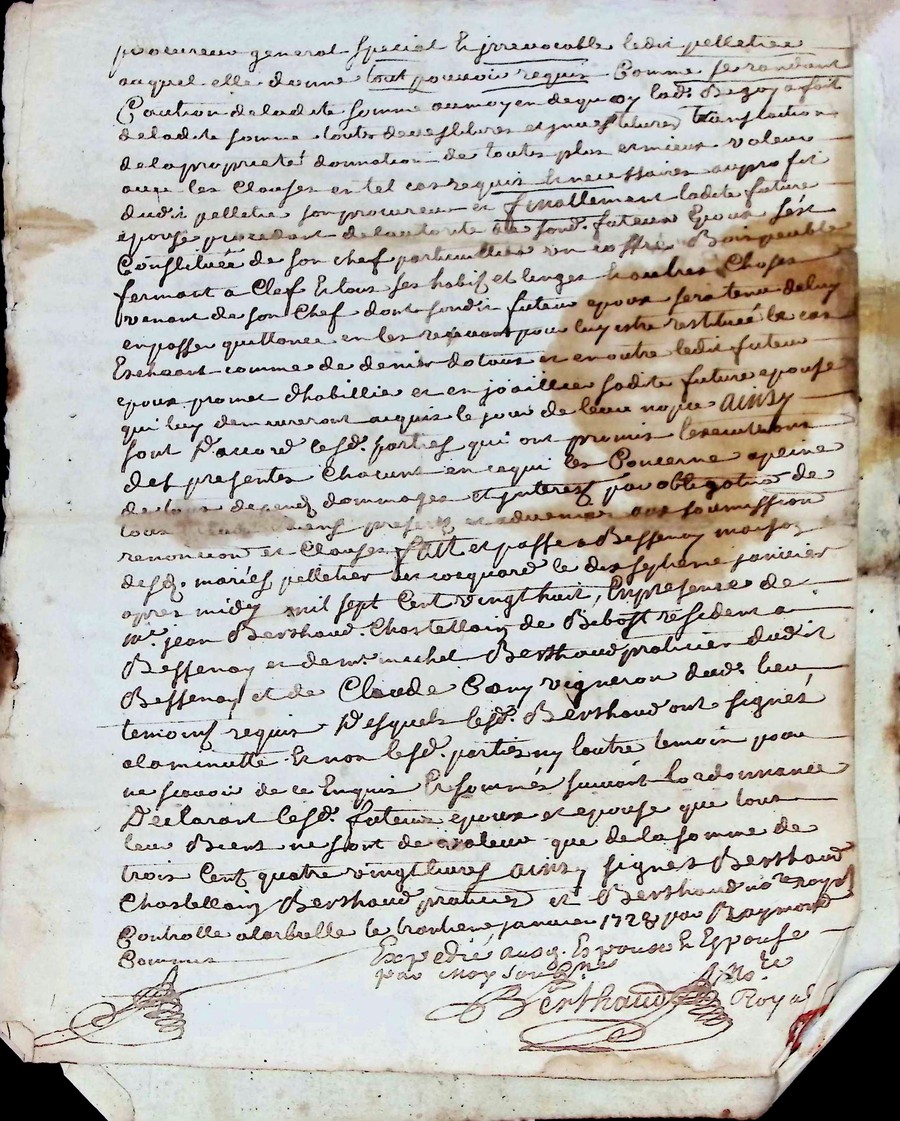 procureur general special & irrevocable ledit pelletier
auquel elle donne tout pouvoir requis Comme se rendant
Caution de ladite somme au moyen de quoy lad. a fait
de ladite somme toutes translation
de la proprieté donnation de toutes plus et mieux valeur
avec les Clauses en tel cas requis & necessaires au profit
dudit pelletier son procureur et finallement ladite future
epouse procedant de lautorite de sond. futeur Epoux sest
Constituée de son chef particullier un coffre Bois
fermant a Clef & tous ses habis et linges & autres Choses
venant de son Chef dont sondit futeur epoux sera tenu de luy
en passer quittance en les recevant pour luy estre restitueé le cas
Escheant comme de denier dotaux et en outre ledit futeur
epoux promet dhabillier et en joaillier sadite future epouse
qui luy demeureront acquis le jour de leur nopce ainsy
sont Daccord lesd. parties qui ont promis lexecutions
des presentes Chacuns en cequi les Concerne a peine
de tous depens dommages et interest par obligation de
tous biens presens et advenir aux soumission
renoncion et Clauses fait et passé a Bessenay maison
desd. mariés pelletier et cocquard le dix septieme janvier
apres midy mil sept Cent vingt huit, En presense de
me. jean Berthaud. Chastellain de Bibost résident a
Bessenay et de mr. michel Berthaud praticien dudit
Bessenay et de Claude Cony vigneron dud. lieu
temoins requis Desquels lesd. Berthaud ont signés
a la minutte Et non lesd. parties ny lautre temoin pour
ne scavoir de ce Enquis & sommés suivant lordonnance
Déclarant lesd. futeurs epoux et epouse que tous
leur Biens ne sont de valeur que de la somme de
trois Cent quatre vingt livres ainsy signes Berthaud
Chastellain Berthaud praticien et Berthaud nore. royal
Controlle a larbrelle le trentieme janvier 1728 par Raymond
Commis
Expedié ausd. Espoux & Espouse
par moy sousigne
Berthaud Nore
Royal